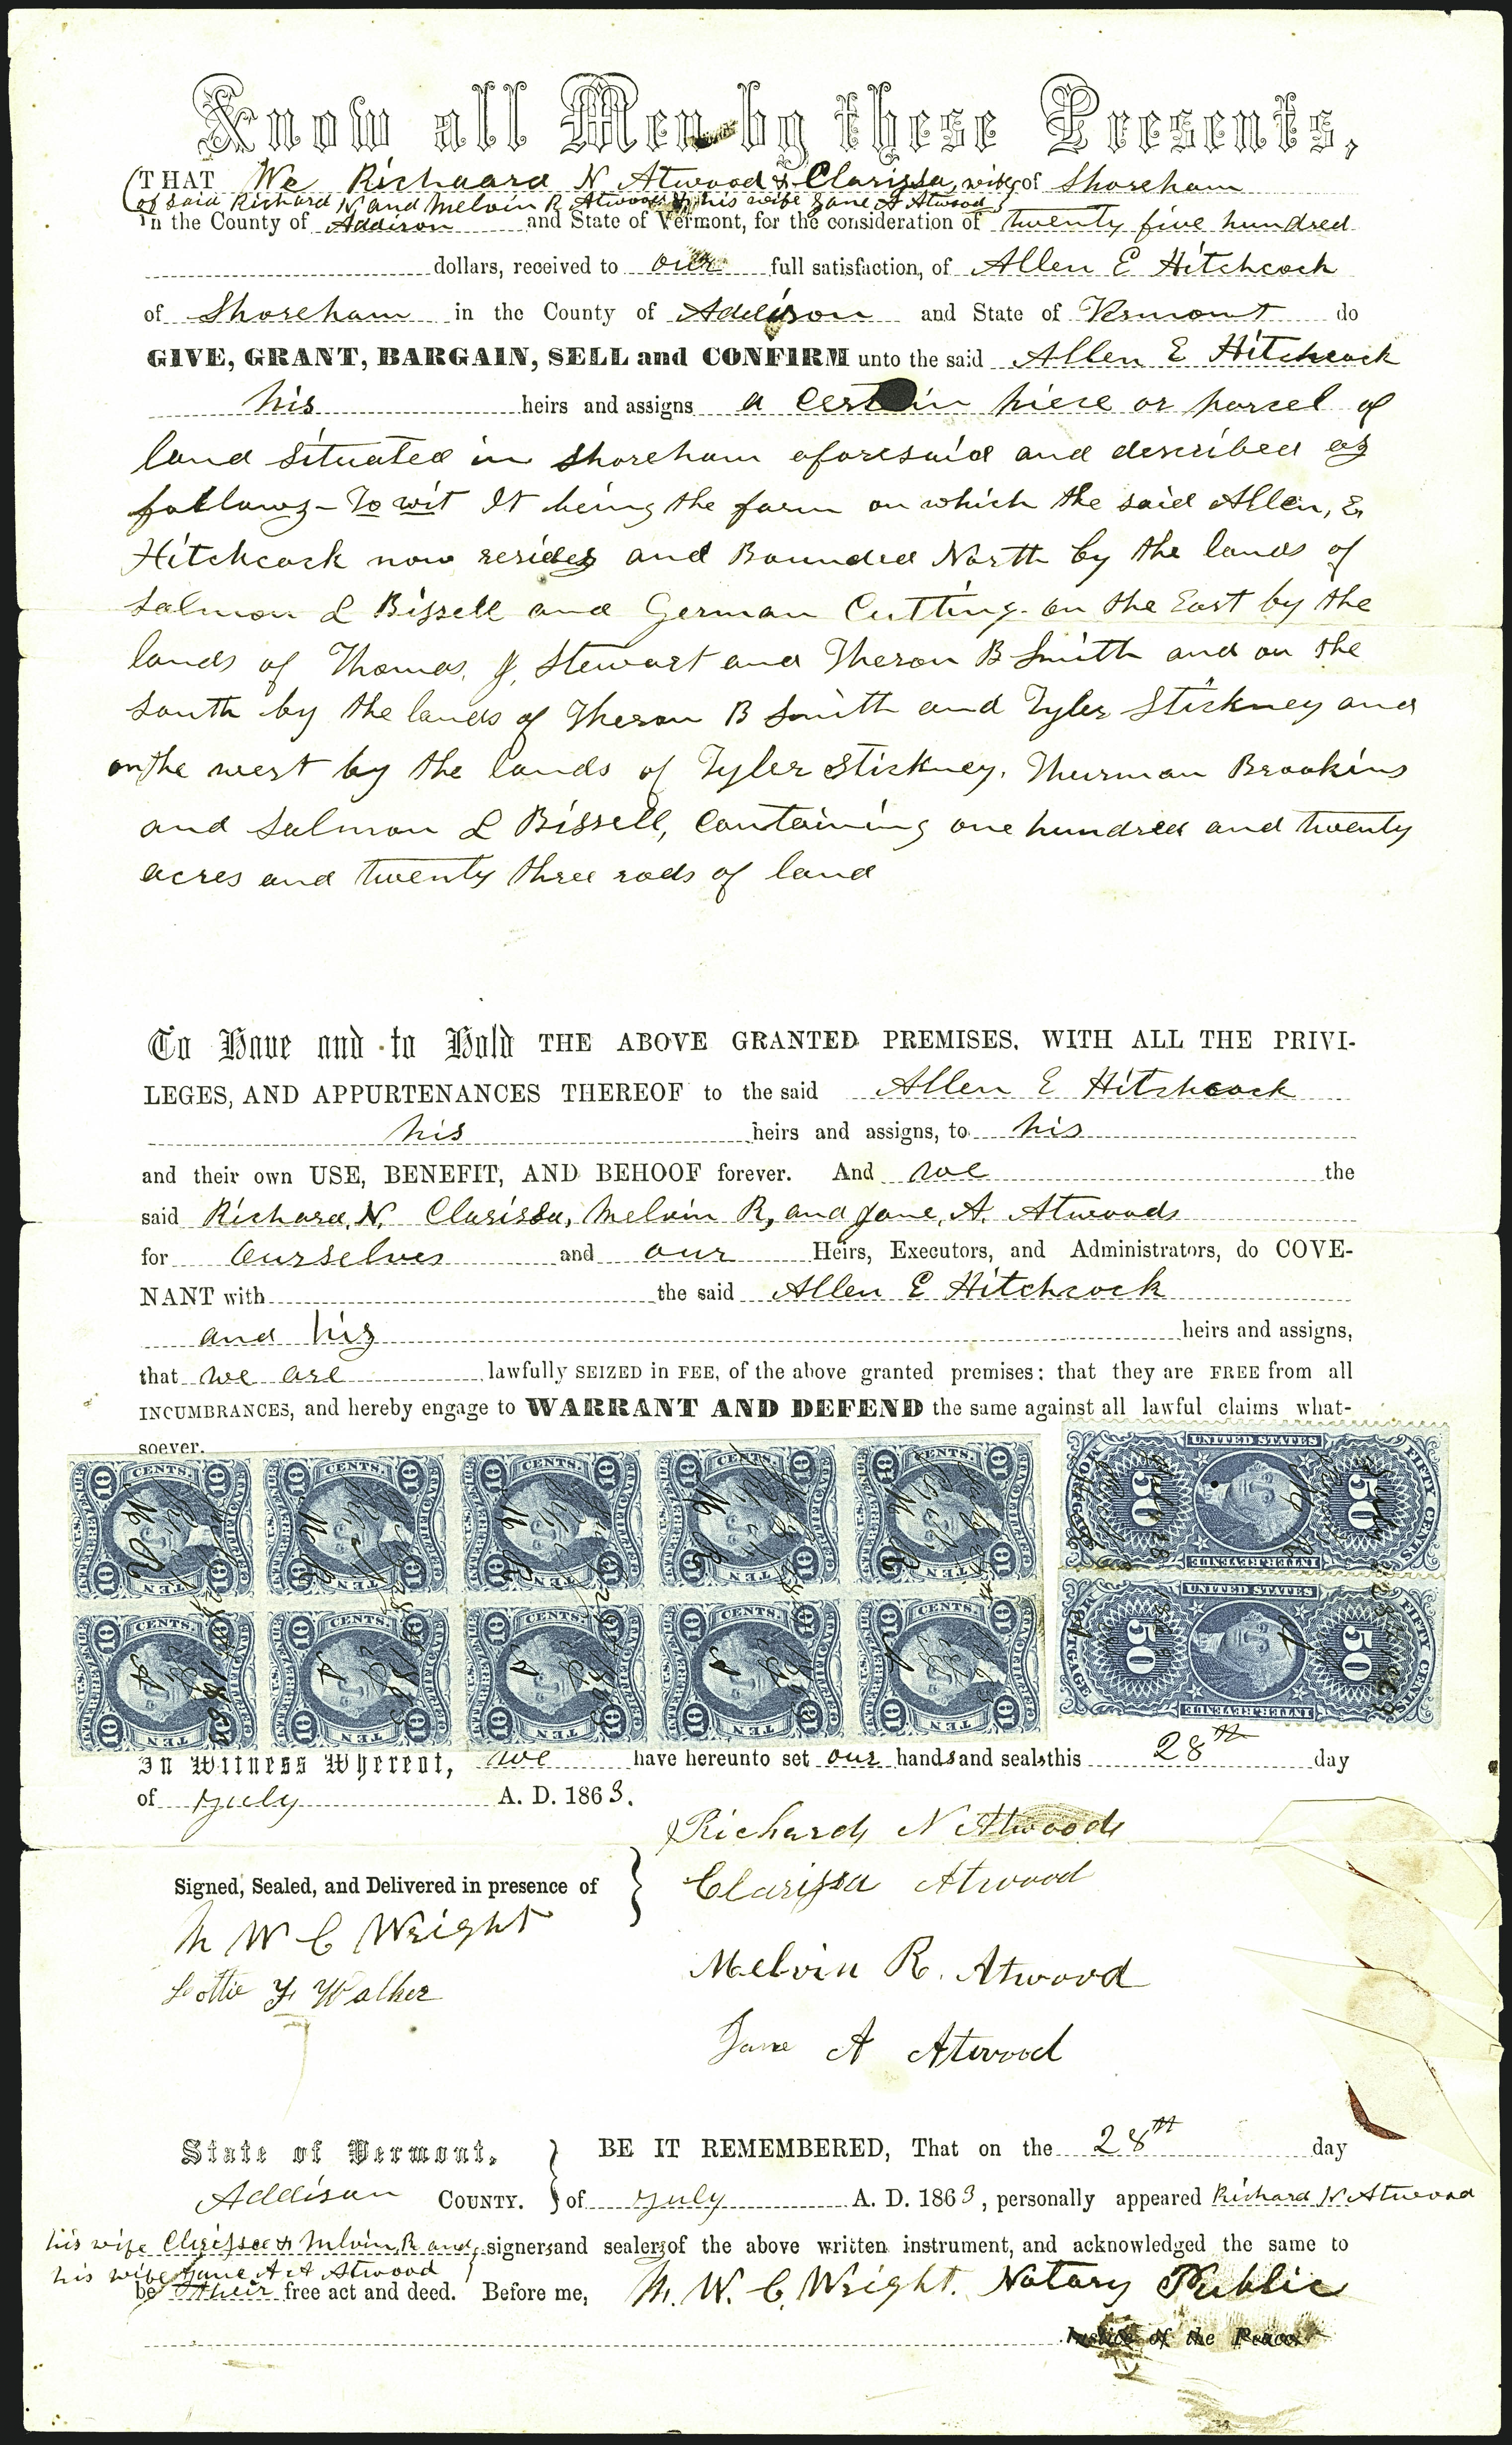 Know all Men by these Presents,
THAT We Richaard N Atwood & Clarissa, wife, of Shoreham
of said Richard N and Melvin R Atwood & his wife Jane A Atwood
in the County of Addison and State of Vermont, for the consideration of twenty five hundred
dollars, received to our full satisfaction, of Allen E Hitchcock
of Shoreham in the County of Addison and State of Vermont do
GIVE, GRANT, BARGAIN, SELL and CONFIRM unto the said Allen E Hitchcock
his heirs and assigns a certain piece or parcel of
land situated in Shoreham aforesaid and described as
follows - To wit It being the farm on which the said Allen, E,
Hitchcock now resides and Bounded North by the lands of
Salmon L Bissell and German Cutting. on the East by the
lands of Thomas, J, Stewart and Theron B Smith and on the
South by the lands of Theron B Smith and Tyler Stickney and
on the west by the lands of Tyler Stickney, Thurman Brookins
and Salmon L Bissell, containing one hundred and twenty
acres and twenty three rods of land
To Have and to Hold THE ABOVE GRANTED PREMISES, WITH ALL THE PRIVI-
LEGES, AND APPURTENANCES THEREOF to the said Allen E Hitchcock
his heirs and assigns, to his
and their own USE, BENEFIT, AND BEHOOF forever. And we the
said Richard, N. Clarissa, Melvin R, and Jane, A. Atwoods
for Ourselves and our Heirs, Executors, and Administrators, do COVE-
NANT with the said Allen E Hitchcock
and his heirs and assigns,
that we are lawfully SEIZED in FEE, of the above granted premises: that they are FREE from all
INCUMBRANCES, and hereby engage to WARRANT AND DEFEND the same against all lawful claims what-
soever.
10 CENTS. 10 10 CENTS. 10 10 CENTS. 10 10 CENTS. 10 10 CENTS. 10
10 TEN 10 10 TEN 10 10 TEN 10 10 TEN 10 10 TEN 10
10 CENTS. 10 10 CENTS. 10 10 CENTS. 10 10 CENTS. 10 10 CENTS. 10
10 TEN 10 10 TEN 10 10 TEN 10 10 TEN 10 10 TEN 10
UNITED STATES
50 50 FIFTY CENTS
INTER. REVENUE
UNITED STATES
50 50 FIFTY CENTS
INTER. REVENUE
In Witness Whereof, we have hereunto set our hands and seals this 28th day
of July A. D. 1863.
Richard N Atwood
Signed, Sealed, and Delivered in presence of
Clarissa Atwood
M W C Wright
Melvin R. Atwood
Lottie F Walker
Jane A Atwood
State of Vermont,
Addison COUNTY.
BE IT REMEMBERED, That on the 28th day
of July A. D. 1863, personally appeared Richard N Atwood
his wife Clarissa & Melvin, R and signers and sealers of the above written instrument, and acknowledged the same to
his wife Jane A Atwood
be their free act and deed. Before me, M. W. C. Wright. Notary Public
Justice of the Peace